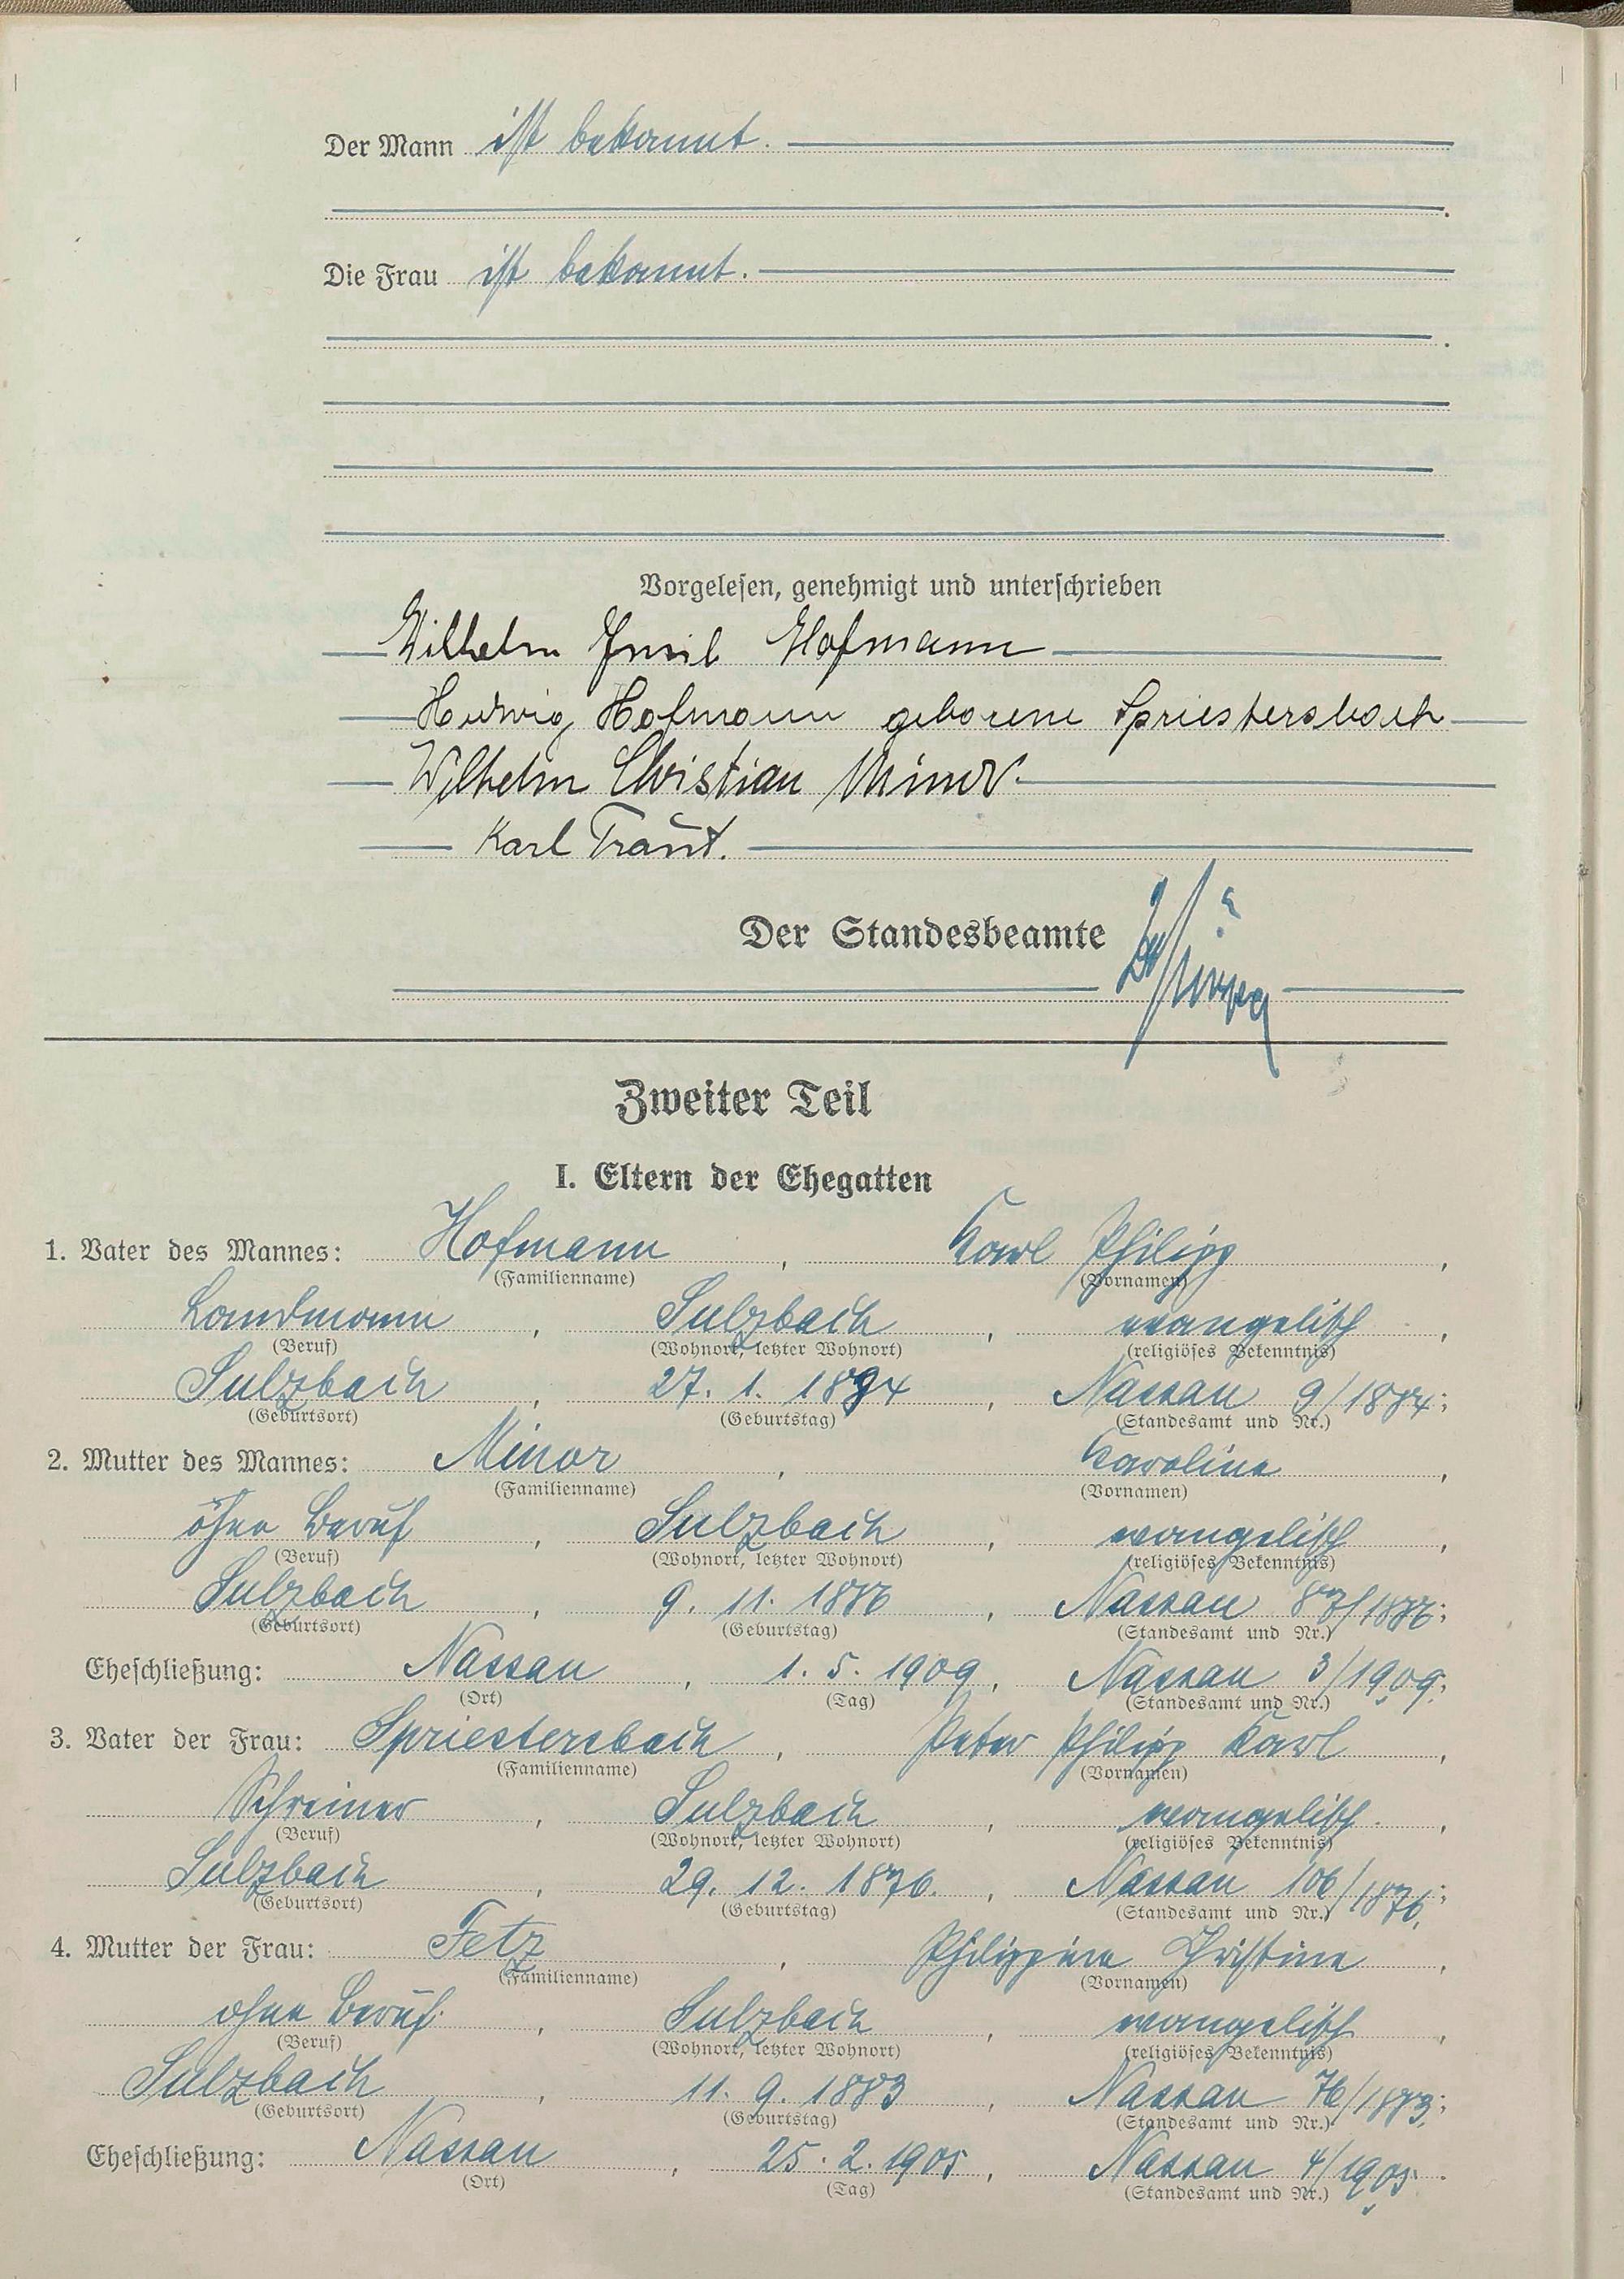 Der Mann ist bekannt.
Die Frau ist bekannt.
Vorgelesen, genehmigt und unterschrieben
Wilhelm Emil Hofmann
Hedwig Hofmann geborene Spriestersbach
Wilhelm Christian Minor.
Karl Traut.
Der Standesbeamte
Zweiter Teil
I. Eltern der Ehegatten
1. Vater des Mannes: Hofmann, Karl Philipp,
(Familienname) (Vornamen)
Landmann, Sulzbach, evangelisch,
(Beruf) (Wohnort, letzter Wohnort) (religiöses Bekenntnis)
Sulzbach, 27. 1. 1884, Nassau 9/1884;
(Geburtsort) (Geburtstag) (Standesamt und Nr.)
2. Mutter des Mannes: Minor, Karoline,
(Familienname) (Vornamen)
ohne Beruf, Sulzbach, evangelisch,
(Beruf) (Wohnort, letzter Wohnort) (religiöses Bekenntnis)
Sulzbach, 9. 11. 1886, Nassau 87/1886;
(Geburtsort) (Geburtstag) (Standesamt und Nr.)
Eheschließung: Nassau, 1. 5. 1909, Nassau 3/1909;
(Ort) (Tag) (Standesamt und Nr.)
3. Vater der Frau: Spriestersbach, Peter Philipp Karl,
(Familienname) (Vornamen)
Schreiner, Sulzbach, evangelisch.,
(Beruf) (Wohnort, letzter Wohnort) (religiöses Bekenntnis)
Sulzbach, 29. 12. 1876., Nassau 106/1876;
(Geburtsort) (Geburtstag) (Standesamt und Nr.)
4. Mutter der Frau: Fetz, Philippine Christine,
(Familienname) (Vornamen)
ohne Beruf., Sulzbach, evangelisch,
(Beruf) (Wohnort, letzter Wohnort) (religiöses Bekenntnis)
Sulzbach, 11. 9. 1883, Nassau 76/1883;
(Geburtsort) (Geburtstag) (Standesamt und Nr.)
Eheschließung: Nassau, 25. 2. 1905, Nassau 4/1905.
(Ort) (Tag) (Standesamt und Nr.)